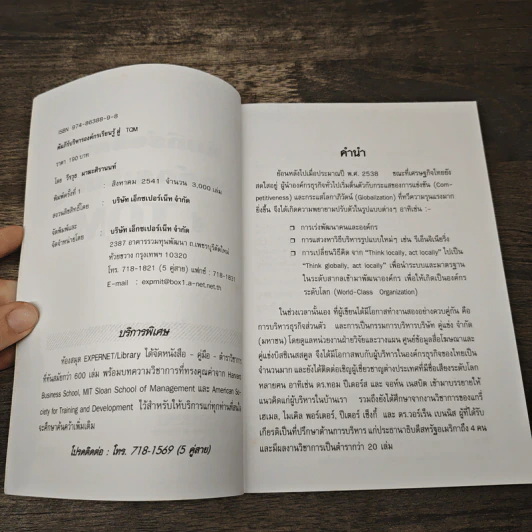 ISBN 974-86388-9-8
คัมภีร์บริหารองค์กรเรียนรู้ สู่ TQM
ราคา 160 บาท
โดย วีรวุธ มาฆะศิรานนท์
พิมพ์ครั้งที่ 1 : สิงหาคม 2541 จำนวน 3,000 เล่ม
สงวนลิขสิทธิ์โดย : บริษัท เอ็กซเปอร์เน็ท จำกัด
จัดพิมพ์และ
จัดจำหน่ายโดย : บริษัท เอ็กซเปอร์เน็ท จำกัด
2387 อาคารรวมทุนพัฒนา ถ.เพชรบุรีตัดใหม่
ห้วยขวาง กรุงเทพฯ 10320
โทร. 718-1821 (5 คู่สาย) แฟกซ์ : 718-1831
E-mail : expmit@box1.a-net.net.th
บริการพิเศษ
ห้องสมุด EXPERNET/Library ได้จัดหนังสือ - คู่มือ - ตำราวิชาการ
ที่ทันสมัยกว่า 600 เล่ม พร้อมบทความวิชาการที่ทรงคุณค่าจาก Harvard
Business School, MIT Sloan School of Management และ American So-
ciety for Training and Development ไว้สำหรับให้บริการแก่ทุกท่านที่สนใจ
จะศึกษาค้นคว้าเพิ่มเติม
โปรดติดต่อ : โทร. 718-1569 (5 คู่สาย)
คำนำ
ย้อนหลังไปเมื่อประมาณปี พ.ศ. 2538 ขณะที่เศรษฐกิจไทยยัง
สดใสอยู่ ผู้นำองค์กรธุรกิจทั่วไปเริ่มตื่นตัวกับกระแสของการแข่งขัน (Com-
petitiveness) และกระแสโลกาภิวัตน์ (Globalization) ที่ทวีความรุนแรงมาก
ยิ่งขึ้น จึงได้เกิดความพยายามปรับตัวในรูปแบบต่างๆ อาทิเช่น :-
❒ การเร่งพัฒนาคนและองค์กร
❒ การแสวงหาวิธีบริหารรูปแบบใหม่ๆ เช่น รีเอ็นจิเนียริ่ง
❒ การเปลี่ยนวิธีคิด จาก “Think locally, act locally” ไปเป็น
“Think globally, act locally” เพื่อนำระบบและมาตรฐาน
ในระดับสากลเข้ามาพัฒนาองค์กร เพื่อให้เกิดเป็นองค์กร
ระดับโลก (World-Class Organization)
ในช่วงเวลานั้นเอง ที่ผู้เขียนได้มีโอกาสทำงานสองอย่างควบคู่กัน คือ
การบริหารธุรกิจส่วนตัว และการเป็นกรรมการบริหารบริษัท คู่แข่ง จำกัด
(มหาชน) โดยดูแลหน่วยงานฝ่ายวิจัยและวางแผน ศูนย์ข้อมูลสื่อโฆษณาและ
คู่แข่งบิสซิเนสสคูล จึงได้มีโอกาสพบกับผู้บริหารในองค์กรธุรกิจของไทยเป็น
จำนวนมาก และยังได้ติดต่อเชิญผู้เชี่ยวชาญต่างประเทศที่มีชื่อเสียงระดับโลก
หลายคน อาทิเช่น ดร.ทอม ปีเตอร์ส และ จอห์น เนสบิต เข้ามาบรรยายให้
แนวคิดแก่ผู้บริหารในบ้านเรา รวมถึงยังได้ศึกษาจากงานวิชาการของแกรี่
เฮเมล, ไมเคิล พอร์เตอร์, ปีเตอร์ เซ็งกี้ และ ดร.วอร์เร็น เบนนิส ผู้ที่ได้รับ
เกียรติเป็นที่ปรึกษาด้านการบริหาร แก่ประธานาธิบดีสหรัฐอเมริกาถึง 4 คน
และมีผลงานวิชาการเป็นตำรากว่า 20 เล่ม